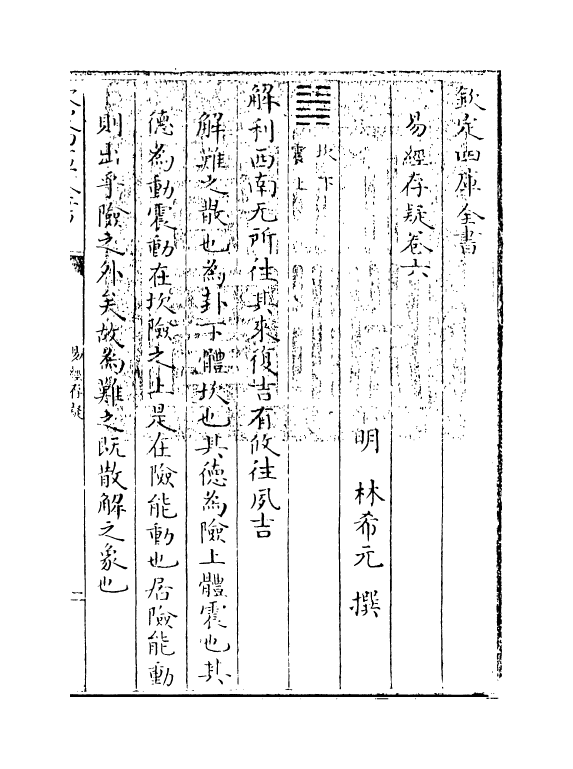 欽定四庫全書
易經存疑卷六
明　林希元　撰
坎下
震上
解利西南无所往其來復吉有攸往夙吉
解難之散也為卦下體坎也其德為險上體震也其
德為動震動在坎險之上是在險能動也居險能動
則出乎險之外矣故為難之既散解之象也
易經存疑